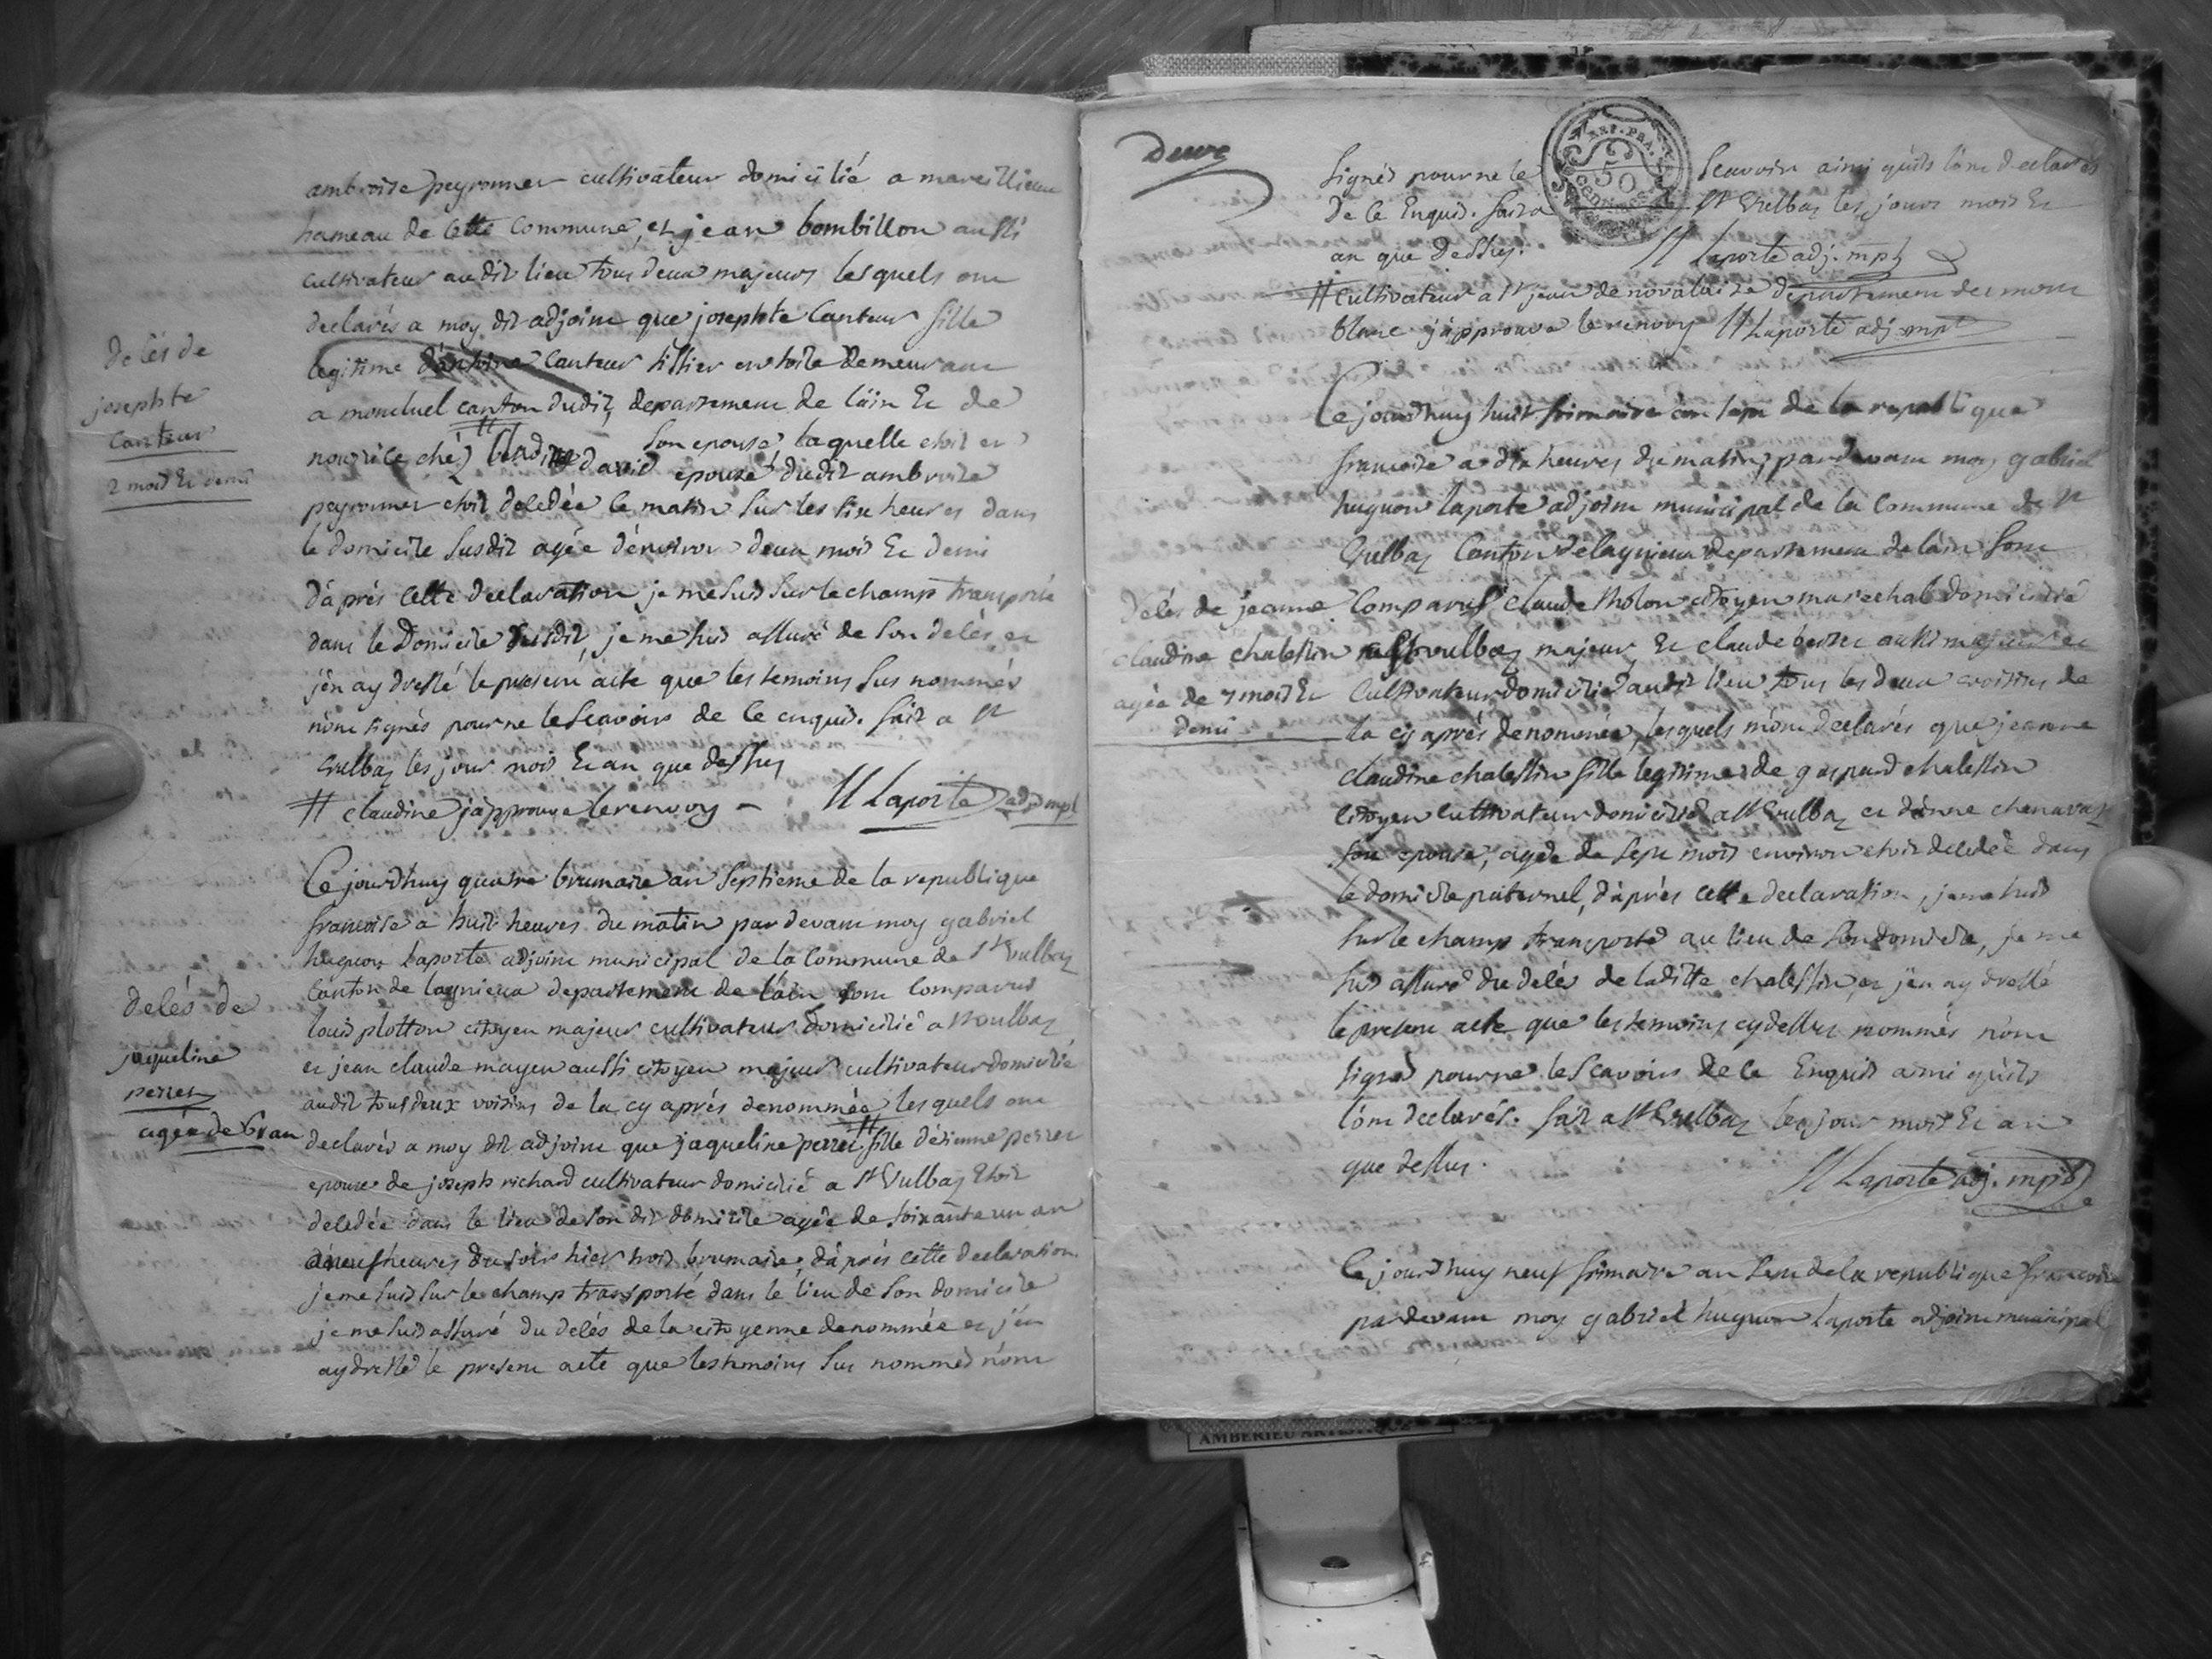 ambroise peyronner cultivateur domicilié a marcillieux
hameau de cette Commune, et jean bombillon aussi
cultivateur audit lieu tous deux majeurs lesquels ont
declarés a moy dit adjoint que josephte Canteur fille
legitime d'antoine Canteur tissier en toile demeurant
a montluel canton dudit, departement de l'ain et de
son epouse laquelle etoit en
nourice ché david epouse dudit ambroise
peyronner etoit decedée le matin sur les six heures dans
le domicile susdit agée d'environ deux mois et demi
d'aprés cette declaration je me suis sur le champ transporté
dans le Domicile susdit, je me suis assuré de son decés et
j'en ay dressé le present acte que les temoins sus nommés
n'ont signés pour ne le scavoir de ce enquis. fait a st
Vulbaz les jour mois et an que dessus
# claudine j'approuve le renvoy - H Laporte adj mpl
decés de
josephte
Canteur
2 mois et demi
Ce jourdhuy quatre brumaire an septieme de la republique
francoise a huit heures du matin par devant moy gabriel
huguon Laporte adjoint municipal de la Commune de st Vulbaz
Canton de lagnieux departement de l'ain sont Comparus
louis plotton citoyen majeur cultivateur domicilié a st vulbaz
et jean claude mayeu aussi citoyen majeur cultivateur domicilié
audit tous deux voisins de la cy aprés denommée lesquels ont
declarés a moy dit adjoint que jaqueline perret # fille d'etienne perret
epouse de joseph richard cultivateur domicilié a st Vulbaz etoit
decedée dans le lieu de son dit domicile agée de soixante un an
a neuf heures du soir hier trois brumaire, d'aprés cette declaration
je me suis sur le champ transporté dans le lieu de son domicile
je me suis assuré du decés de la citoyenne denommée et j'en
ay dressé le present acte que les temoins sus nommés n'ont
decés de
jaqueline
perret
agée de 61 an
deux
REP. FRA.
50
CENTIMES
signés pour ne le scavoir ainsi qu'ils l'ont declarés
de ce Enquis. fait a st Vulbaz les jours mois et
an que dessus. H Laporte adj. mpl
# cultivateur a st jean de novalaise departement du mont
blanc j'approuve le renvoy H Laporte adj. mpl
Ce jourdhuy huit frimaire an sept de la republique
francoise a dix heures du matin, par devant moy gabriel
huguon laporte adjoint municipal de la Commune de st
Vulbaz Canton de lagnieux departement de l'ain sont
Comparus claude tholon citoyen marechal domicilié
a st vulbaz majeur et claude aussi majeur et
cultivateur domicilié audit lieu tous les deux voisins de
la cy aprés denommée, lesquels m'ont declarés que jeanne
claudine chalessin fille legitime de gaspard chalessin
citoyen cultivateur domicilié a st Vulbaz et d'anne chanavaz
son epouse, agée de sept mois environ etoit decedée dans
le domicile paternel, d'aprés cette declaration, je me suis
sur le champ transporté au lieu de son domicile, je me
suis assuré du decés de laditte chalessin, et j'en ay dressé
le present acte que les temoins cy dessus nommés n'ont
signés pour ne le scavoir de ce Enquis ainsi qu'ils
l'ont declarés. fait a st Vulbaz les jour mois et an
que dessus. H Laporte adj. mpl
decés de jeanne
claudine chalessin
agée de 7 mois et
demi
Ce jourdhuy neuf frimaire an sept de la republique francoise
par devant moy gabriel huguon laporte adjoint municipal
AMBERIEU ARTISTIQUE